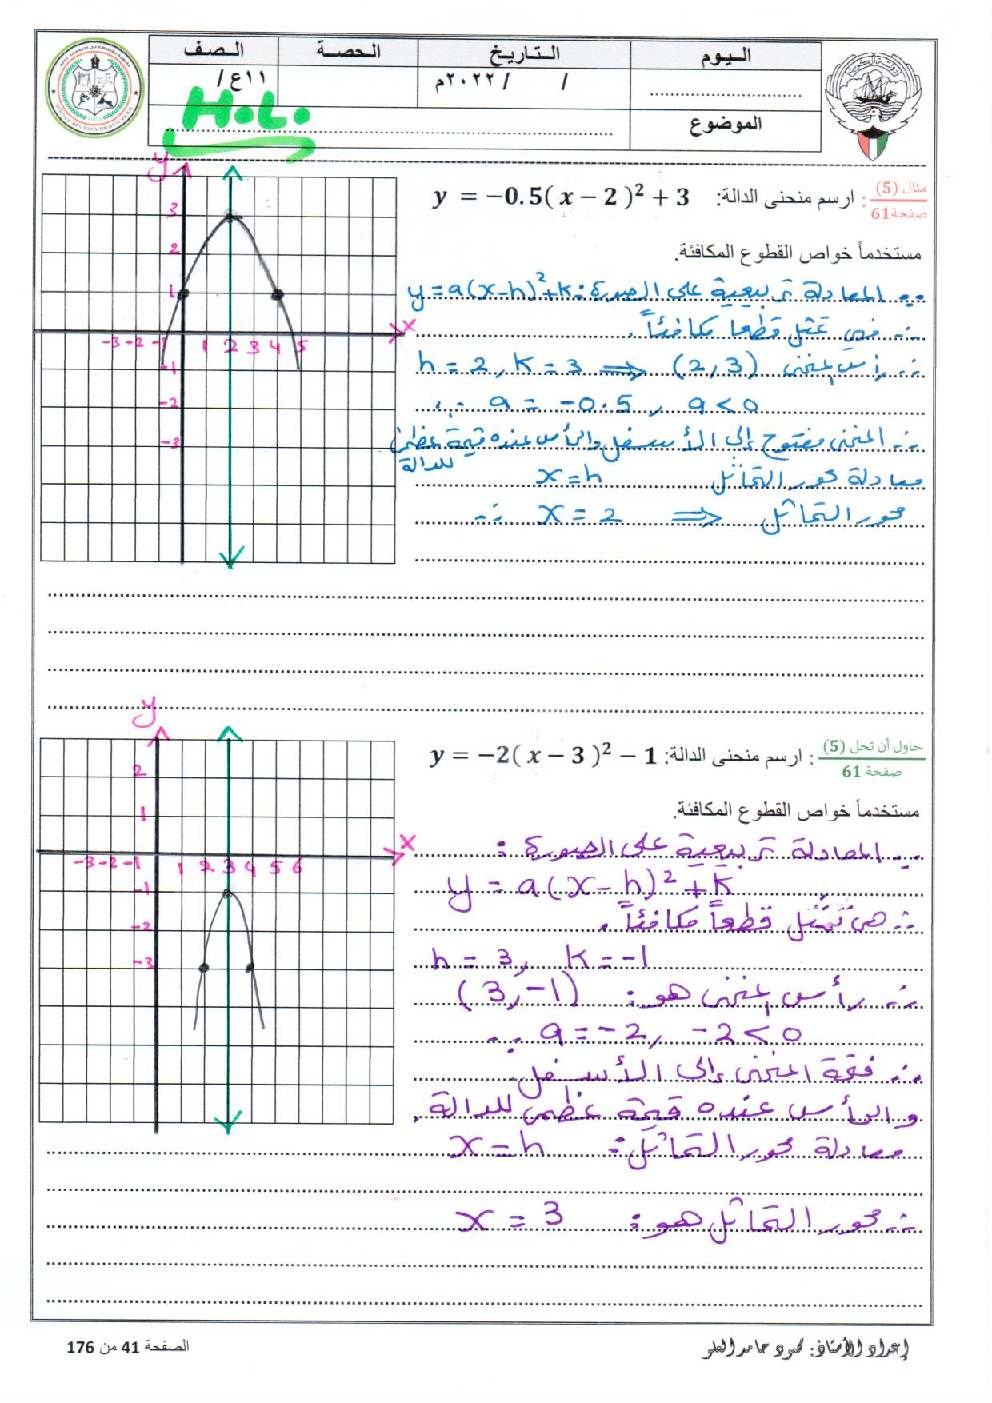 اليوم التاريخ الحصة الصف
/ / ٢٠٢٢م ١١ع /
الموضوع
H.L.
مثال (5) صفحة 61 : ارسم منحنى الدالة: y = −0.5( x − 2 )² + 3
مستخدماً خواص القطوع المكافئة.
∵ المعادلة تربيعية على الصورة: y = a(x-h)²+k
∴ فهي تمثل قطعا مكافئاً.
h = 2, k = 3 ⟹ (2,3) ∴ رأس المنحنى
∵ a = -0.5, a < 0
∴ المنحنى مفتوح إلى الأسفل والرأس عنده قيمة عظمى
للدالة
معادلة محور التماثل x = h
محور التماثل ⟹ x = 2 ∴
y
3
2
1
x
-3 -2 -1 1 2 3 4 5
-1
-2
-3
حاول أن تحل (5) صفحة 61 : ارسم منحنى الدالة: y = −2( x − 3 )² − 1
مستخدماً خواص القطوع المكافئة.
∵ المعادلة تربيعية على الصورة:
y = a(x-h)²+k
∴ هي تُمثل قطعاً مكافئاً.
h = 3, k = -1
∴ رأس المنحنى هو: (3,-1)
∵ a = -2, -2 < 0
∴ فتحة المنحنى إلى الأسفل
والرأس عنده قيمة عظمى للدالة.
معادلة محور التماثل: x = h
∴ محور التماثل هو: x = 3
y
2
1
x
-3 -2 -1 1 2 3 4 5 6
-1
-2
-3
إعداد الأستاذ: محمود حامد العلو
الصفحة 41 من 176